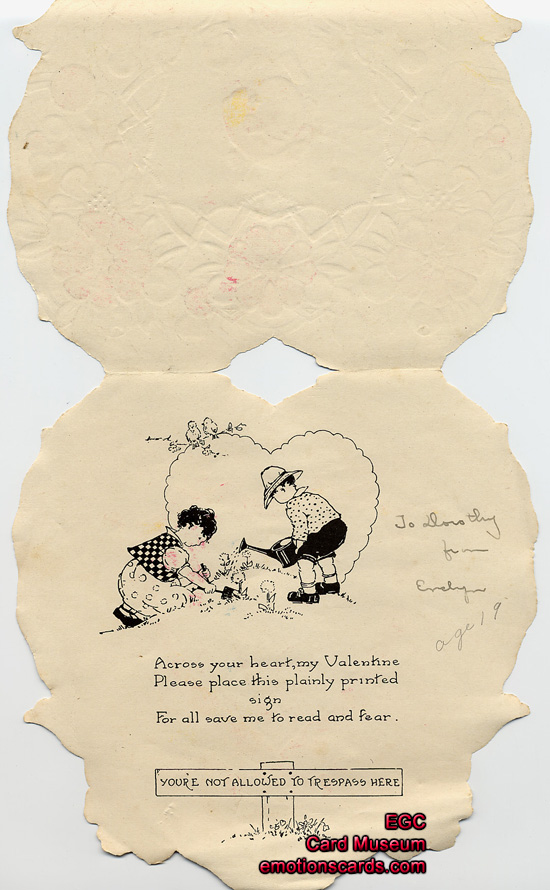 To Dorothy
from
Evelyn
age 19
Across your heart, my Valentine
Please place this plainly printed
sign
For all save me to read and fear.
YOU'RE NOT ALLOWED TO TRESPASS HERE
EGC
Card Museum
emotionscards.com